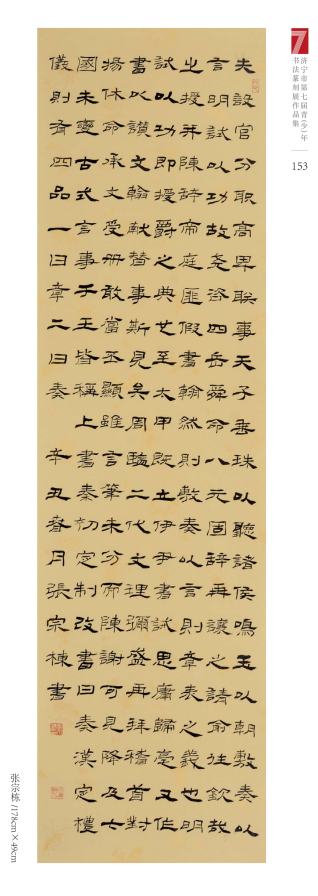 济宁市第七届青(少)年
书法篆刻展作品集
153
夫設官分職高卑聯事天子垂珠以聽諸侯鳴玉以朝敷奏以
言明試以功故堯咨四岳舜命八元固辭再讓之請俞往欽哉
之授并陳辭帝庭匪假書翰然則敷奏以言則章表之義也明
試以功即授爵之典也至太甲既立伊尹書試思庸歸亳又作
書以讚文翰献替事斯見矣周監二代文理彌盛再拜稽首對
揚休命承文受冊敢當丕顯雖言筆未分而陳謝可見降及七
國未變古式言事于王皆稱上書秦初定制改書曰奏漢定禮
儀則有四品一曰章二曰奏 辛丑春月張宗棟書
张宗栋/178cm×49cm